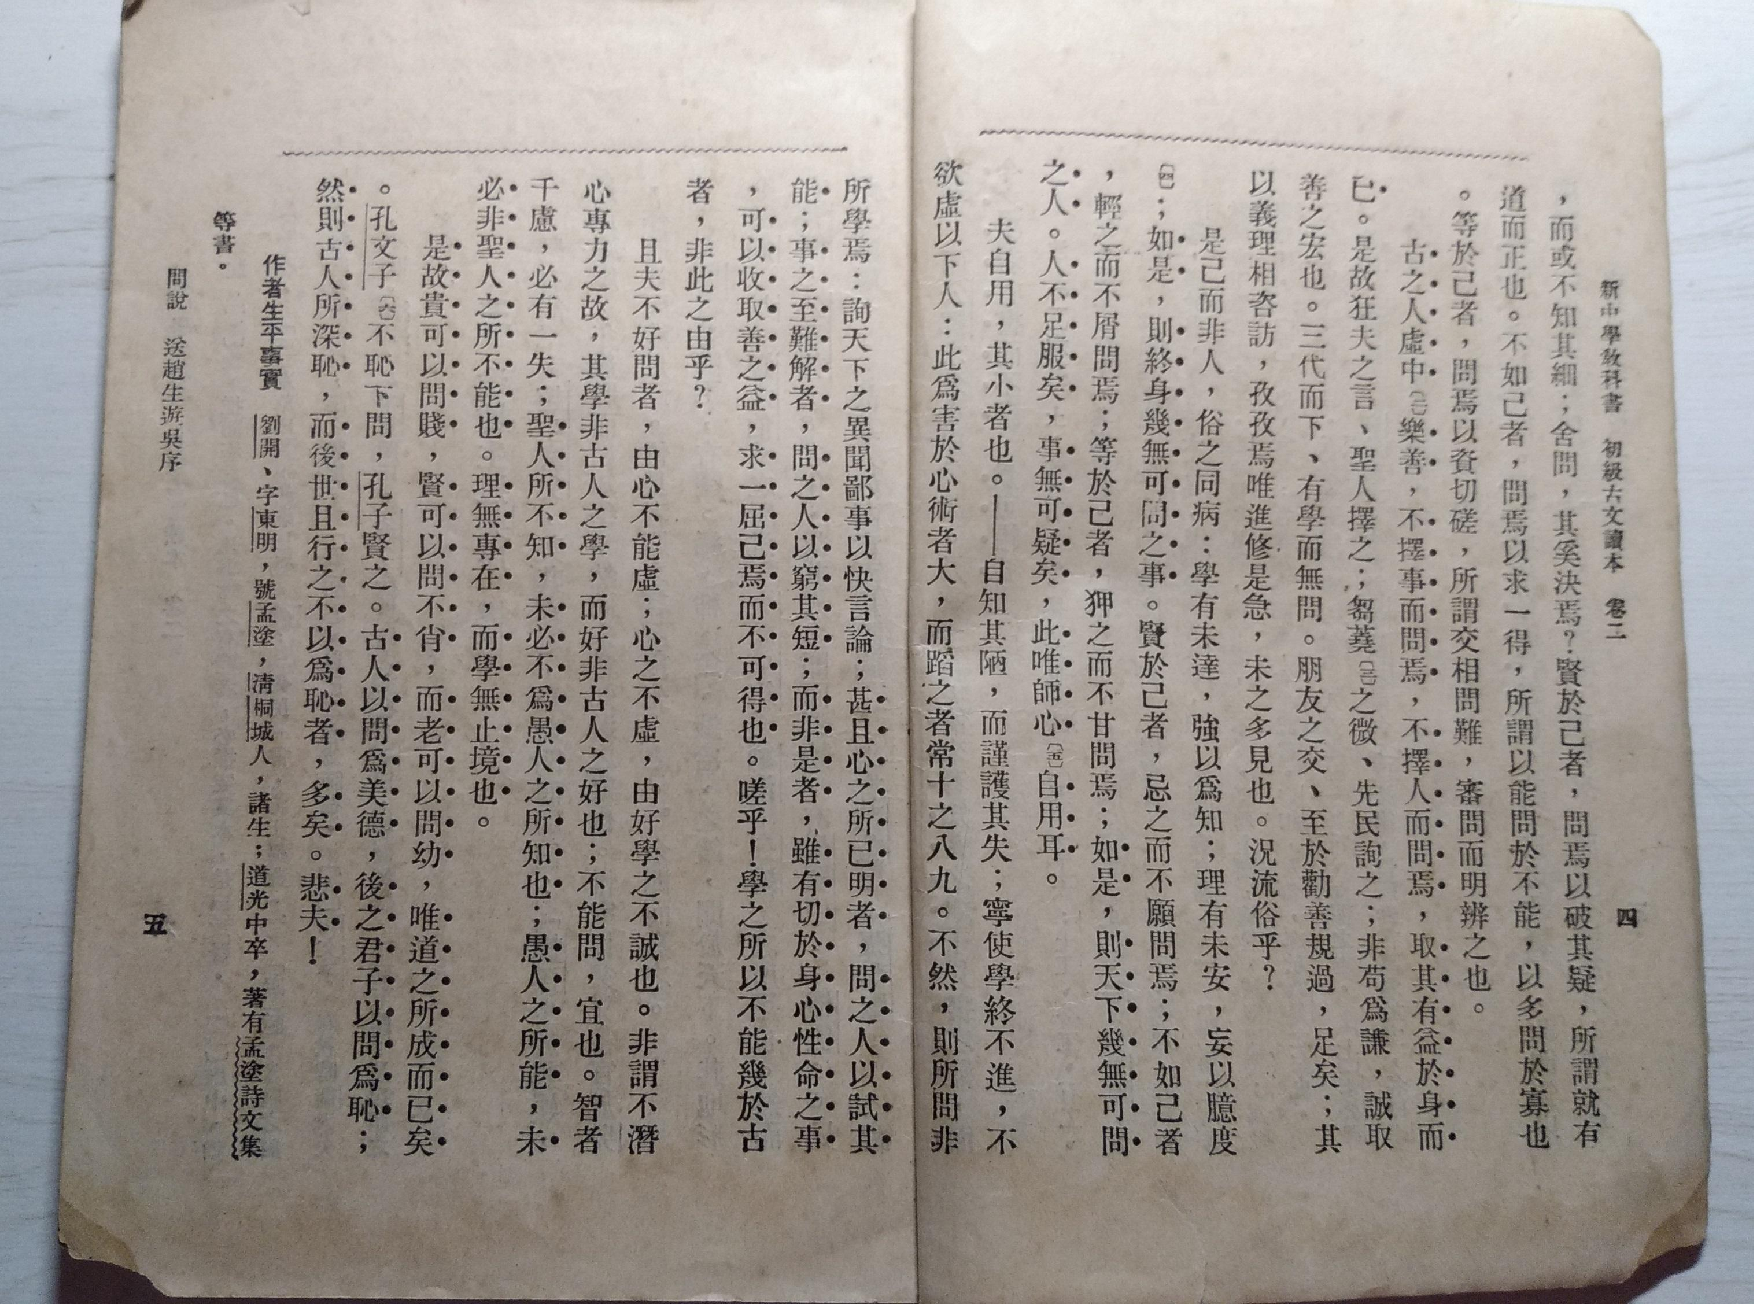 新中學教科書　初級古文讀本　卷二
四
，而或不知其細；舍問，其奚決焉？賢於己者，問焉以破其疑，所謂就有
道而正也。不如己者，問焉以求一得，所謂以能問於不能，以多問於寡也
。等於己者，問焉以資切磋，所謂交相問難，審問而明辨之也。
古之人虛中〔二〕樂善，不擇事而問焉，不擇人而問焉，取其有益於身而
已。是故狂夫之言、聖人擇之；芻蕘〔三〕之微、先民詢之；非苟爲謙，誠取
善之宏也。三代而下、有學而無問。朋友之交、至於勸善規過，足矣；其
以義理相咨訪，孜孜焉唯進修是急，未之多見也。況流俗乎？
是己而非人，俗之同病：學有未達，強以爲知；理有未安，妄以臆度
〔四〕；如是，則終身幾無可問之事。賢於己者，忌之而不願問焉；不如己者
，輕之而不屑問焉；等於己者，狎之而不甘問焉；如是，則天下幾無可問
之人。人不足服矣，事無可疑矣，此唯師心〔五〕自用耳。
夫自用，其小者也。——自知其陋，而謹護其失；寧使學終不進，不
欲虛以下人：此爲害於心術者大，而蹈之者常十之八九。不然，則所問非
所學焉：詢天下之異聞鄙事以快言論；甚且心之所已明者，問之人以試其
能；事之至難解者，問之人以窮其短；而非是者，雖有切於身心性命之事
，可以收取善之益，求一屈己焉而不可得也。嗟乎！學之所以不能幾於古
者，非此之由乎？
且夫不好問者，由心不能虛；心之不虛，由好學之不誠也。非謂不潛
心專力之故，其學非古人之學，而好非古人之好也；不能問，宜也。智者
千慮，必有一失；聖人所不知，未必不爲愚人之所知也；愚人之所能，未
必非聖人之所不能也。理無專在，而學無止境也。
是故貴可以問賤，賢可以問不肖，而老可以問幼，唯道之所成而已矣
。孔文子〔六〕不恥下問，孔子賢之。古人以問爲美德，後之君子以問爲恥；
然則古人所深恥，而後世且行之不以爲恥者，多矣。悲夫！
作者生平事實　劉開、字東明，號孟塗，清桐城人，諸生；道光中卒，著有孟塗詩文集
等書。
問說　送趙生遊吳序
五